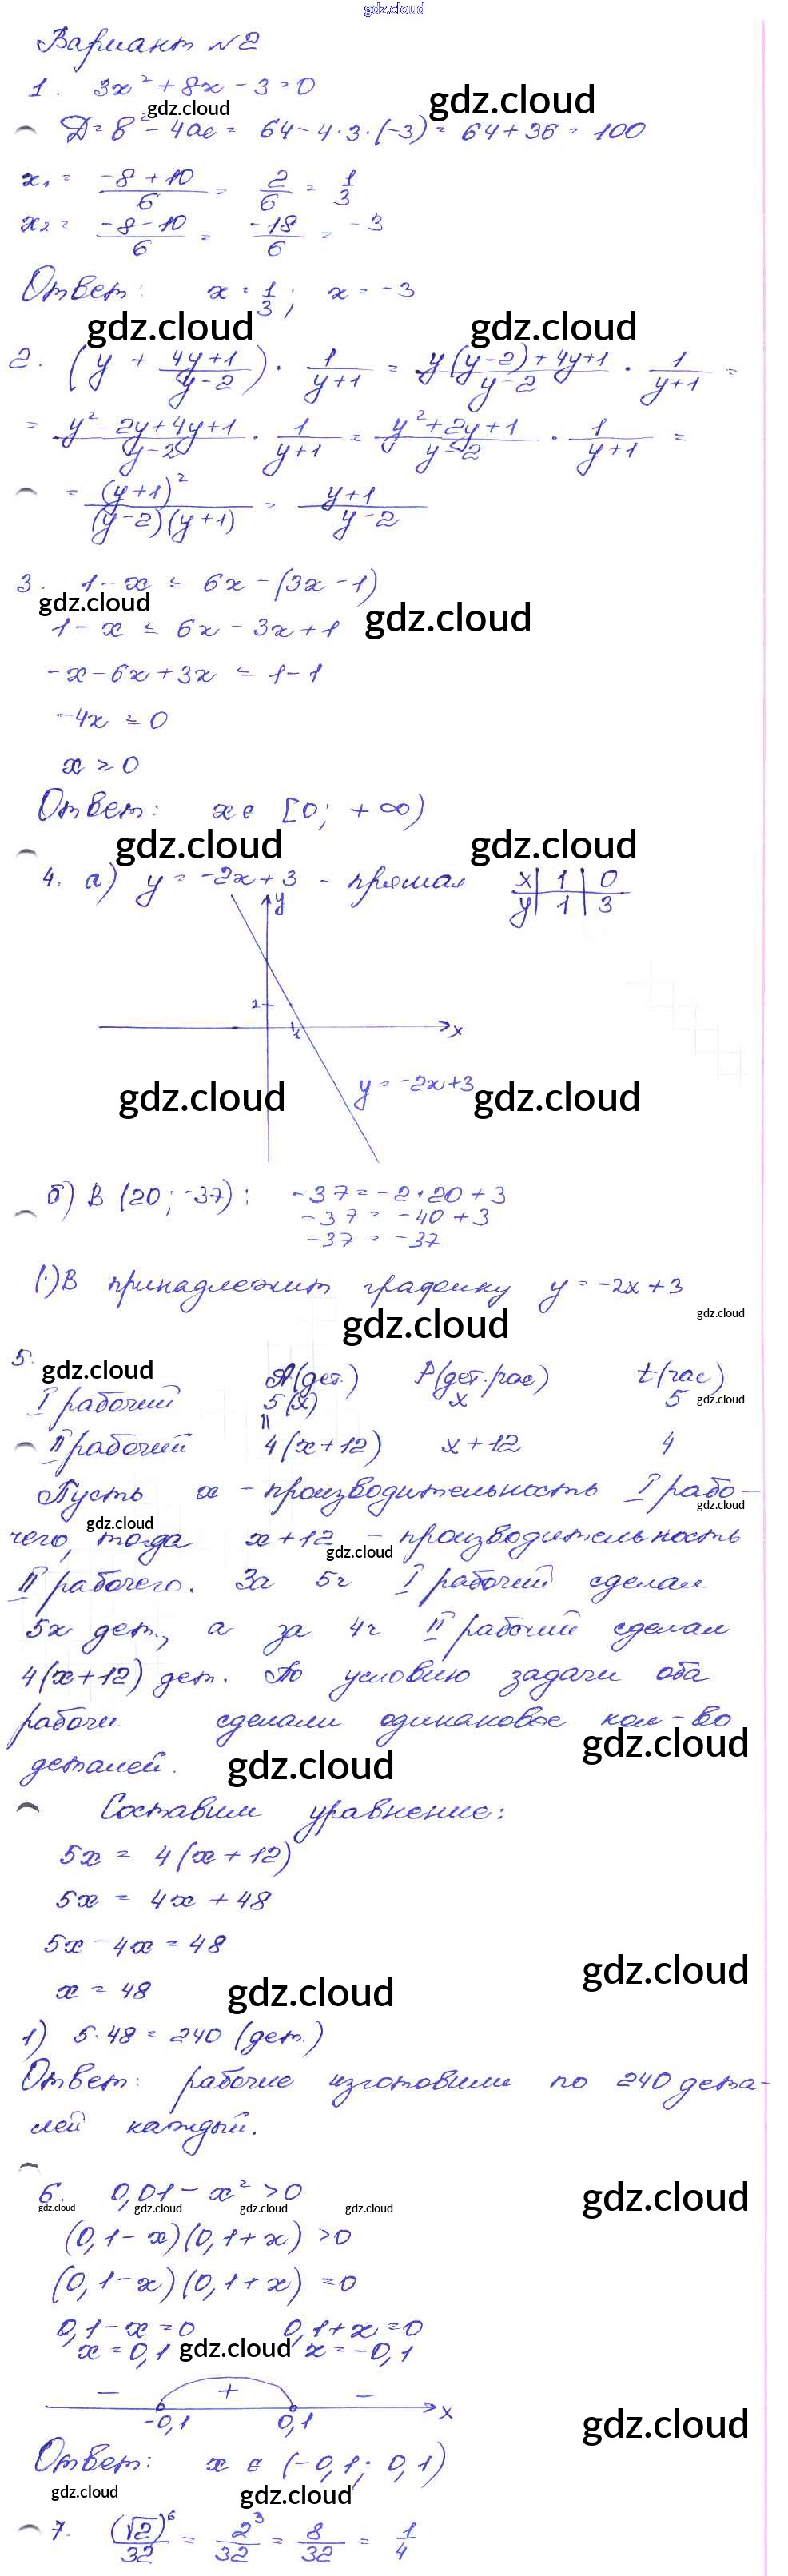 gdz.cloud
Вариант №2
1. 3x² + 8x - 3 = 0
gdz.cloud gdz.cloud
D = 8² - 4ac = 64 - 4·3·(-3) = 64 + 36 = 100
x₁ = (-8 + 10)/6 = 2/6 = 1/3
x₂ = (-8 - 10)/6 = -18/6 = -3
Ответ: x = 1/3; x = -3
gdz.cloud gdz.cloud
2. (y + (4y+1)/(y-2)) · 1/(y+1) = (y(y-2)+4y+1)/(y-2) · 1/(y+1) =
= (y² - 2y + 4y + 1)/(y-2) · 1/(y+1) = (y² + 2y + 1)/(y-2) · 1/(y+1) =
= (y+1)²/((y-2)(y+1)) = (y+1)/(y-2)
3. 1 - x ≤ 6x - (3x - 1)
gdz.cloud gdz.cloud
1 - x ≤ 6x - 3x + 1
-x - 6x + 3x ≤ 1 - 1
-4x ≤ 0
x ≥ 0
Ответ: x ∈ [0; +∞)
gdz.cloud gdz.cloud
4. а) y = -2x + 3 - прямая
x | 1 | 0
y | 1 | 3
y
1
1
x
y = -2x+3
gdz.cloud gdz.cloud
б) B (20; -37): -37 = -2·20 + 3
-37 = -40 + 3
-37 = -37
(·)B принадлежит графику y = -2x + 3
gdz.cloud gdz.cloud
5.
gdz.cloud A(дет.) P(дет.час) t(час)
I рабочий 5(x) x 5 gdz.cloud
=
II рабочий 4(x+12) x+12 4
Пусть x - производительность I рабо-
gdz.cloud
чего, тогда x+12 - производительность
gdz.cloud gdz.cloud
II рабочего. За 5ч I рабочий сделал
5x дет., а за 4ч II рабочий сделал
4(x+12) дет. По условию задачи оба
рабочи сделали одинаковое кол-во
деталей. gdz.cloud gdz.cloud
Составим уравнение:
5x = 4(x + 12)
5x = 4x + 48
5x - 4x = 48
x = 48 gdz.cloud gdz.cloud
1) 5·48 = 240 (дет.)
Ответ: рабочие изготовили по 240 дета-
лей каждый.
6. 0,01 - x² > 0
gdz.cloud gdz.cloud gdz.cloud gdz.cloud gdz.cloud
(0,1 - x)(0,1 + x) > 0
(0,1 - x)(0,1 + x) = 0
0,1 - x = 0 0,1 + x = 0
x = 0,1 gdz.cloud x = -0,1
- + - x
-0,1 0,1 gdz.cloud
Ответ: x ∈ (-0,1; 0,1)
gdz.cloud gdz.cloud
7. (√2)⁶/32 = 2³/32 = 8/32 = 1/4